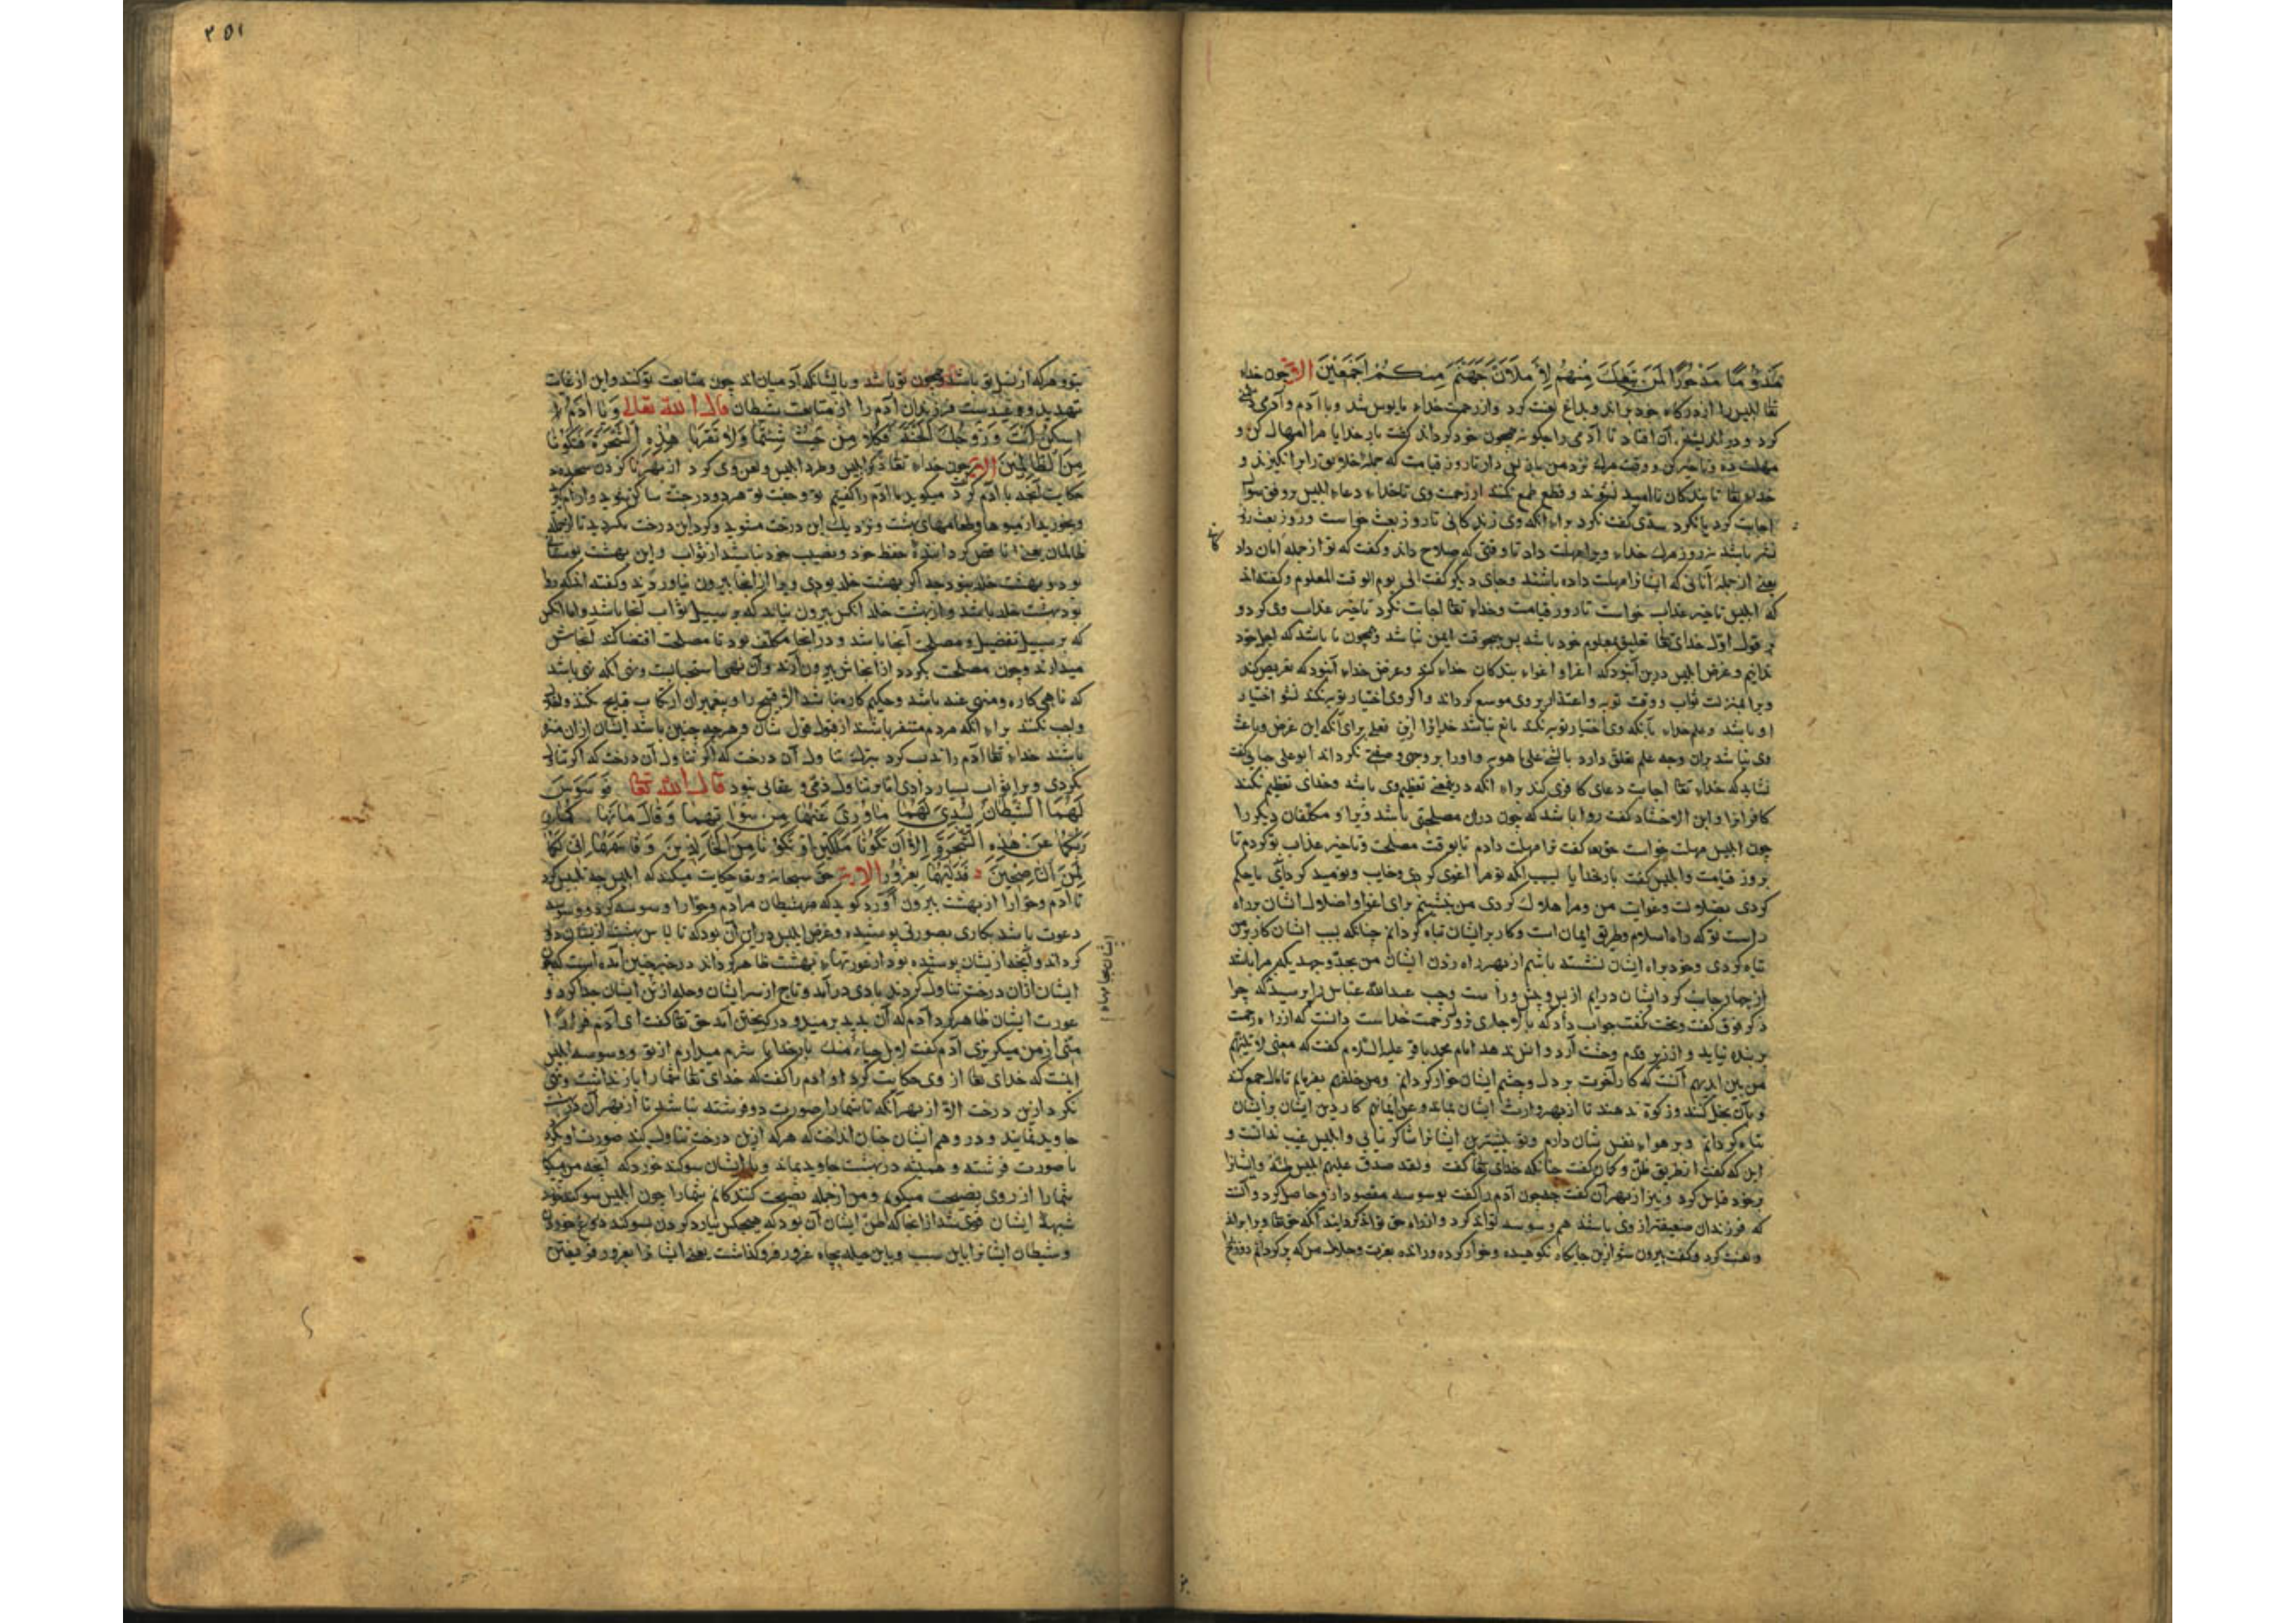 مَذْؤُمًا مَدْحُورًا لَمَنْ تَبِعَكَ مِنْهُمْ لَأَمْلَأَنَّ جَهَنَّمَ مِنْكُمْ أَجْمَعِينَ الآیة چون خداء
تعا ابلیس را از درکاه خود براند وبداغ لعنت کرد واز رحمت خداء مایوس شد وبا آدم و
کرد ودر اندیشه آن افتاد تا آدمی را چکونه همچون خود کرداند کفت بار خدایا مرا امهال کن و
مهلت ده وتاخیر کن ووقت مرك نزد من باز پس دار تا روز قیامت که جمله خلایق را برانکیزند و
خداء تعا تا بندکان ناامید نشوند و قطع طمع نکنند از رحمت وی تا خداء دعاء ابلیس بر وفق سوال
اجابت کرد یا نکرد سدّی کفت نکرد براء آنکه وی زندکانی تا روز بعث خواست وروز بعث روز
نشر باشد نه روز مرك خداء ویرا مهلت داد تا وقتی که صلاح داند وکفت که تو از جمله امان داد
یعنی از جمله آنانی که ایشانرا مهلت داده باشند وجای دیکر کفت الی یوم الوقت المعلوم وکفته اند
که ابلیس تاخیر عذاب خواست تا روز قیامت وخداء تعا اجابت نکرد تاخیر عذاب وی کرد و
بر قول اوّل خدای تعا تعلیق بمعلوم خود باشد پس هیچ وقت ایمن نباشد وهمچون ما باشد که اجل خود
ندانیم وغرض ابلیس درین آن بود که اغرا و اغواء بندکان خداء کند وغرض خداء آن بود که تعریض کند
ویرا بمنزلت ثواب ووقت توبه واعتذار بر وی موسع کرداند واکر وی اختیار توبه نکند بسوء اختیار
او باشد وعلم خداء بآنکه وی اختیار توبه نکند مانع نباشد خدایرا ازین فعل برای آنکه این غرض وباعث
وی نباشد بران وجه علم تعلق دارد بالشئ علی ما هو به واورا بر وجهی وصفتی نکرداند ابو علی جبایی کفت
نشاید که خداء تعا اجابت دعای کافری کند براء آنکه در ضمن تعظیم وی باشد وخدای تعظیم نکند
کافرانرا وابن الاخشاد کفت روا باشد که چون دران مصلحتی باشد ویرا و مکلّفان دیکر را
چون ابلیس مهلت خواست حق تعا کفت ترا مهلت دادم تا بوقت مصلحت وتاخیر عذاب تو کردم تا
بروز قیامت وابلیس کفت بار خدایا بسبب آنکه تو مرا اغوی کردی وخایب ونومید کردانی یا حکم
کردی بضلالت وغوایت من ومرا هلاك کردی من بنشینم برای اغوا واضلال ایشان بر راه
راست تو که راه اسلام وطریق ایمان است وکار بر ایشان تباه کردانم چنانکه بسبب ایشان کار بر من
تباه کردی وخود براه ایشان نشسته باشم از بهر راه زدن ایشان من بجدّ وجهد
از چهار جانب کرد ایشان درایم از پس وپیش وراست وچپ عبدالله عباس را پرسید که چرا
ذکر فوق کفت وتحت نکفت جواب داد که بالا جاری نزول رحمت خداست دانست که از راه رحمت
بر بنده نیاید و از زیر قدم وحشت آرد وانس ندهد امام محمد باقر علیه السلام کفت که معنی لآتینّهم
من بین ایدیهم آنست که کار آخرت بر دل وچشم ایشان خوار کردانم ومن خلفهم بفرمایم تا مال جمع کنند
وبآن بخل کنند وزکوة ندهند تا از بهر وارث ایشان بماند وعن ایمانهم کار دین ایشان بر ایشان
تباه کردانم وبر هواء نفس شان دارم وتو بیشترین ایشانرا شاکر نیابی وابلیس غیب ندانست و
این که کفت از طریق ظنّ وکمان کفت چنانکه خدای تعا کفت ولقد صدق علیهم ابلیس ظنّه وایشانرا
کرد ونیز از بهر آن کفت چون آدم را کفت بوسوسه مقصود ازو حاصل کرد دانست
که فرزندان ضعیفتر از وی باشند هم وسوسه تواند کرد واز راه حق تواند کردانید آنکه حق تعا ویرا براند
ولعنت کرد وکفت بیرون شو ازین جایکاه نکوهیده وخوار کرده ورانده بعزت وجلال من که پر کردانم دوزخ
۳۵۱
بتو وهرکه از نسل تو باشد وهمچون تو باشد وبآنانکه آدمیان اند چون متابعت تو کنند واین از غایت
تهدید ووعیدست فرزندان آدم را از متابعت شیطان قال الله تعالی وَيَا آدَمُ
اسْكُنْ أَنْتَ وَزَوْجُكَ الْجَنَّةَ فَكُلَا مِنْ حَيْثُ شِئْتُمَا وَلَا تَقْرَبَا هَذِهِ الشَّجَرَةَ فَتَكُونَا
مِنَ الظَّالِمِينَ الآیة چون خداء تعا ذکر ابلیس وطرد ابلیس ولعن وی کرد از بهر نا کردن سجده
حکایت آنچه با آدم کرد میکوید با آدم را کفتیم تو وجفت تو هردو در جنّت ساکن شوید وآرام کیرید
وبخورید از میوها وطعامهای بهشت ونزدیك این درخت مشوید وکرد این درخت مکردید تا از جمله
ظالمان یعنی ناقص کردانندۀ حفظ خود ونصیب خود نباشید از ثواب واین بهشت
بود وبهشت خلد نبود چه اکر بهشت خلد بودی ویرا از انجا بیرون نیاوردند وکفته اند که روا
بود بهشت خلد باشد واز بهشت خلد انکس بیرون نیاید که بر سبیل ثواب آنجا باشد واما انکس
که بر سبیل تفضیل ومصلحت آنجا باشد و در انجا مکلّف بود تا مصلحت اقتضا کند آنجاش
میدارند وچون مصلحت بکردد از انجاش بیرون آرند وآن نهی استحبابست ونهی آنکه نهی باشد
که ناهی کاره ومنهی عنه باشد وحکیم کاره نباشد الاّ قبیح را وپیغمبران ارتکاب قبایح نکنند
واجب نکنند براء آنکه مردم متنفر باشند از قبول قول شان وهرچه چنین باشد ایشان ازان منزه
باشند خداء تعا آدم را ندب کرد بترك تناول آن درخت که اکر تناول آن درخت
نکردی ویرا ثواب بسیار دادی امّا بر تناول ذمّی وعقابی نبود قال الله تعا فَوَسْوَسَ
لَهُمَا الشَّيْطَانُ لِيُبْدِيَ لَهُمَا مَا وُرِيَ عَنْهُمَا مِنْ سَوْآتِهِمَا وَقَالَ مَا نَهَاكُمَا
رَبُّكُمَا عَنْ هَذِهِ الشَّجَرَةِ إِلَّا أَنْ تَكُونَا مَلَكَيْنِ أَوْ تَكُونَا مِنَ الْخَالِدِينَ وَقَاسَمَهُمَا إِنِّي لَكُمَا
لَمِنَ النَّاصِحِينَ فَدَلَّاهُمَا بِغُرُورٍ الآیة حق سبحانه وتعا حکایت میکند که ابلیس چه تلبیس کرد
تا آدم وحوّا را از بهشت بیرون آورد کوید که شیطان مر آدم وحوّا را وسوسه کرد ووسوسه
دعوت باشد بکاری بصورتی پوشیده وغرض ابلیس درین آن بود که تا لباس بهشت از ایشان دور
کرداند وآنچه از یشان پوشیده بود از عورتهاء بهشت ظاهر کرداند در خبر چنین آمده است که چون
ایشان ازان درخت تناول کردند بادی درآمد وتاج از سر ایشان وحله از تن ایشان جدا کرد و
عورت ایشان ظاهر کرد آدم که آن بدید برمید ودر کریختن آمد حق تعا کفت ای آدم فرارًا
منّی از من میکریزی آدم کفت لا بل حیاءً منك بار خدایا شرم میدارم از تو ووسوسه ابلیس
اینست که خدای تعا از وی حکایت کرد او آدم را کفت که خدای تعا شما را باز نداشت ونهی
نکرد ازین درخت الاّ از بهر آنکه تا شما را صورت دو فرشته نباشد تا از بهر آن در بهشت
جاوید نمانید ودر وهم ایشان چنان انداخت که هرکه ازین درخت تناول کند صورت او
با صورت فرشته وهمیشه در بهشت جاوید بماند وبا ایشان سوکند خورد که آنچه من میکویم
شما را از روی نصیحت میکویم ومن از جمله نصیحت کنندکانم شما را چون ابلیس سوکند خورد
شبهۀ ایشان قوی شد از انجا که ظنّ ایشان آن بود که هیچکس نیارد کردن سوکند دروغ خوردن
وشیطان ایشانرا باین سبب وباین حیله بچاه غرور فرو کذاشت یعنی ایشانرا بغرور فریفتن